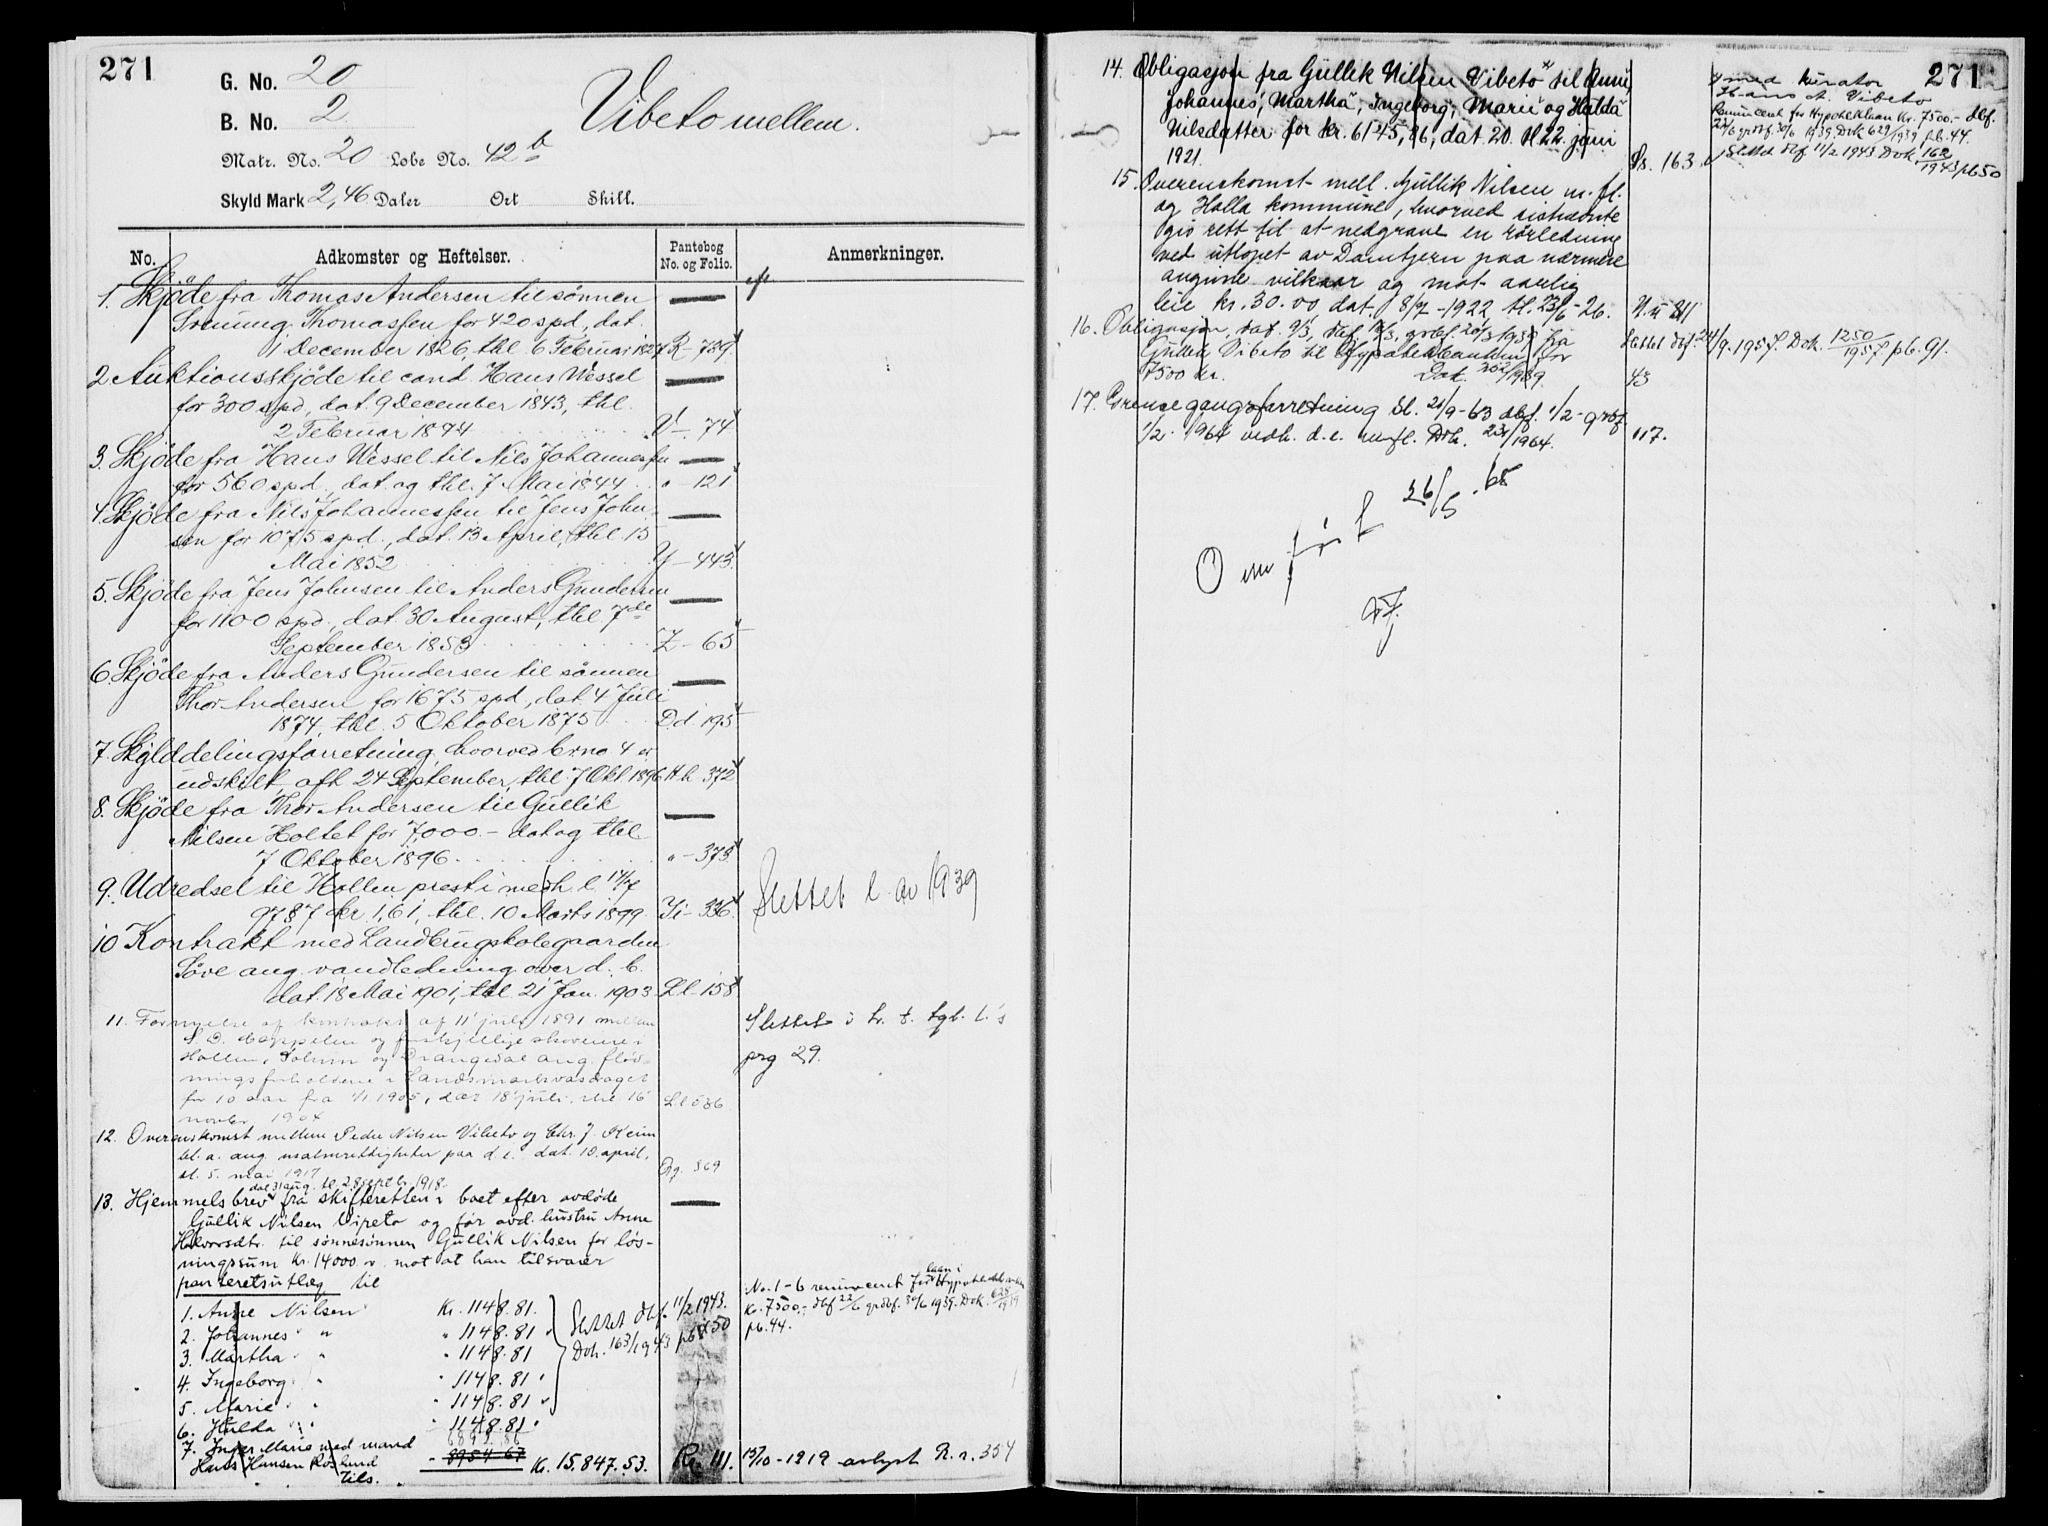 271
G. No. 20
B. No. 2
Vibeto mellem.
Matr. No. 20 Løbe No. 42b
Skyld Mark 2,46 Daler Ort Skill.
No. Adkomster og Heftelser. Pantebog No. og Folio. Anmerkninger.
1. Skjöde fra Thomas Andersen til sönnen
Thomassen for 420 spd., dat.
1 December 1826, thl. 6 Februar 1827 R - 739.
2 Auktionsskjöde til cand. Hans Wessel
for 300 spd., dat. 9 December 1843, thl.
2 Februar 1844 V - 74
3. Skjöde fra Hans Wessel til Nils Johannessen
for 560 spd., dat. og thl. 7 Mai 1844 " - 121
4. Skjöde fra Nils Johannessen til Jens John-
sen for 1075 spd., dat. 13 April, thl. 15
Mai 1852 Y - 443.
5. Skjöde fra Jens Johnsen til Anders Gundersen
for 1100 spd., dat. 30 August, thl. 7de
September 1853 Z - 65
6. Skjöde fra Anders Gundersen til sönnen
Thor Andersen for 1675 spd., dat. 4 Juli
1874, thl. 5 Oktober 1875 Dd 195
7 Skylddelingsforretning, hvorved brno 4 er
udskilt, afh. 24 September, thl. 7 Okt. 1896 Hh 372
8. Skjöde fra Thor Andersen til Gullik
Nilsen Holtet for 7,000.- dat. og thl.
7 Oktober 1896 " - 373.
9. Udredsel til Hollen presti medh. l. 14/7
97 87 kr. 1,61, thl. 10 Marts 1899 Ii - 336. Slettet l. av 1939
10 Kontrakt med Landbrugskolegaarden
Söve ang. vandledning over d. b.
dat. 18 Mai 1901, thl. 21 Jan. 1903 Ll - 158
11. Fornyelse af kontrakt af 11 juli 1891 mellem Slettet i h. t. tgl. l.'s
S. D. Cappelen og forskjellige skoveiere i prg 29.
Hollen, Solum og Drangedal ang. fløt-
ningsforholdene i Landsmarkvasdraget
for 10 aar fra 1/1 1905, dat. 18 juli, thl. 16
novbr. 1904 Ll 536
12. Overenskomst mellem Peder Nilsen Vibeto og Chr. J. Reim
bl. a. ang. malmrettigheter paa d. e. dat. 10. april,
tl. 5. mai 1917 Qq. 369
dat. 31 aug. tl. 28 septbr. 1918.
13. Hjemmelsbrev fra skifteretten i boet efter avdöde
Gullik Nilsen Vibeto og før avd. hustru Anne
Halvorsdtr. til sönnesönnen Gullik Nilsen for løs-
ningssum kr. 14000.00 mot at han tilsvarer
panteretsutlæg til
1. Anne Nilsen Kr. 1148.81.
2. Johannes " " 1148.81
3. Martha " " 1148.81
4. Ingeborg " " 1148.81
5. Marie " " 1148.81
6. Hulda " " 1148.81
Slettet dbf. 11/2 1943.
Dok. 163/1943 pb 50
No. 1-6 renunceret for laan i Hypotekbanken
kr. 7500.- dbf 22/6 grdbf. 30/6 1939. Dok. 628/1939
pb. 44.
6892.86
7. Inger Marie med mand
Hans Hansen Röslund " 8954-67 Kr. 15.847.53. Rr. 111. 15/10-1919 avlyst R. r. 354
tils.
271
14. Obligasjon fra Gullik Nilsen Vibeto x til Anne,
Johannes, Martha, Ingeborg, Marie og Hulda
Nilsdatter for kr. 6145,86, dat. 20. tl. 22. juni
1921. Ss. 163
x med kurator
Hans A. Vibeto
Renunceret for Hypoteklaan kr. 7500.- dbf.
22/6 grdbf. 30/6 1939. Dok 629/1939 pb. 44.
Slettet dbf 11/2 1943 Dok. 162/1943 pb 50
15. Overenskomst mell. Gullik Nilsen m. fl.
og Holla kommune, hvorved sistnevnte
gis rett til at nedgrave en rörledning
ved utlöpet av Damtjern paa nærmere
angivne vilkaar og mot aarlig
leie kr. 30.00, dat. 8/7-1922 tl. 23/6-26. U.u 811
16. Obligasjon, dat. 9/3, dbf. 18/3, grbf. 20/3 1939 fra
Gullik Vibeto til Hypotekbanken for
7500 kr. Dok. 352/1939. 43
Slettet dbf. 24/9.1957. Dok. 1250/1957 pb. 91.
17. Grensegangsforretning tl. 21/9-63 dbf. 1/2-grbf
1/2-1964 vedk. d.e. m.fl. Dok. 231/1964. 117.
Omført 26/5.65